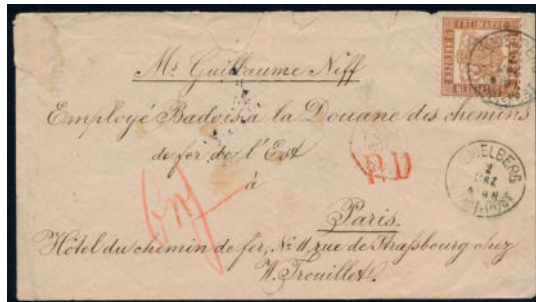 FREIMARKE
Mr Guillaume Neff
Employé Badois à la Douane des chemins
de fer de l'Est
P.D.
à
2
MRZ
Paris.
Hôtel du chemin de fer, No 11 rue de Straßbourg chez
W. Trouillet.